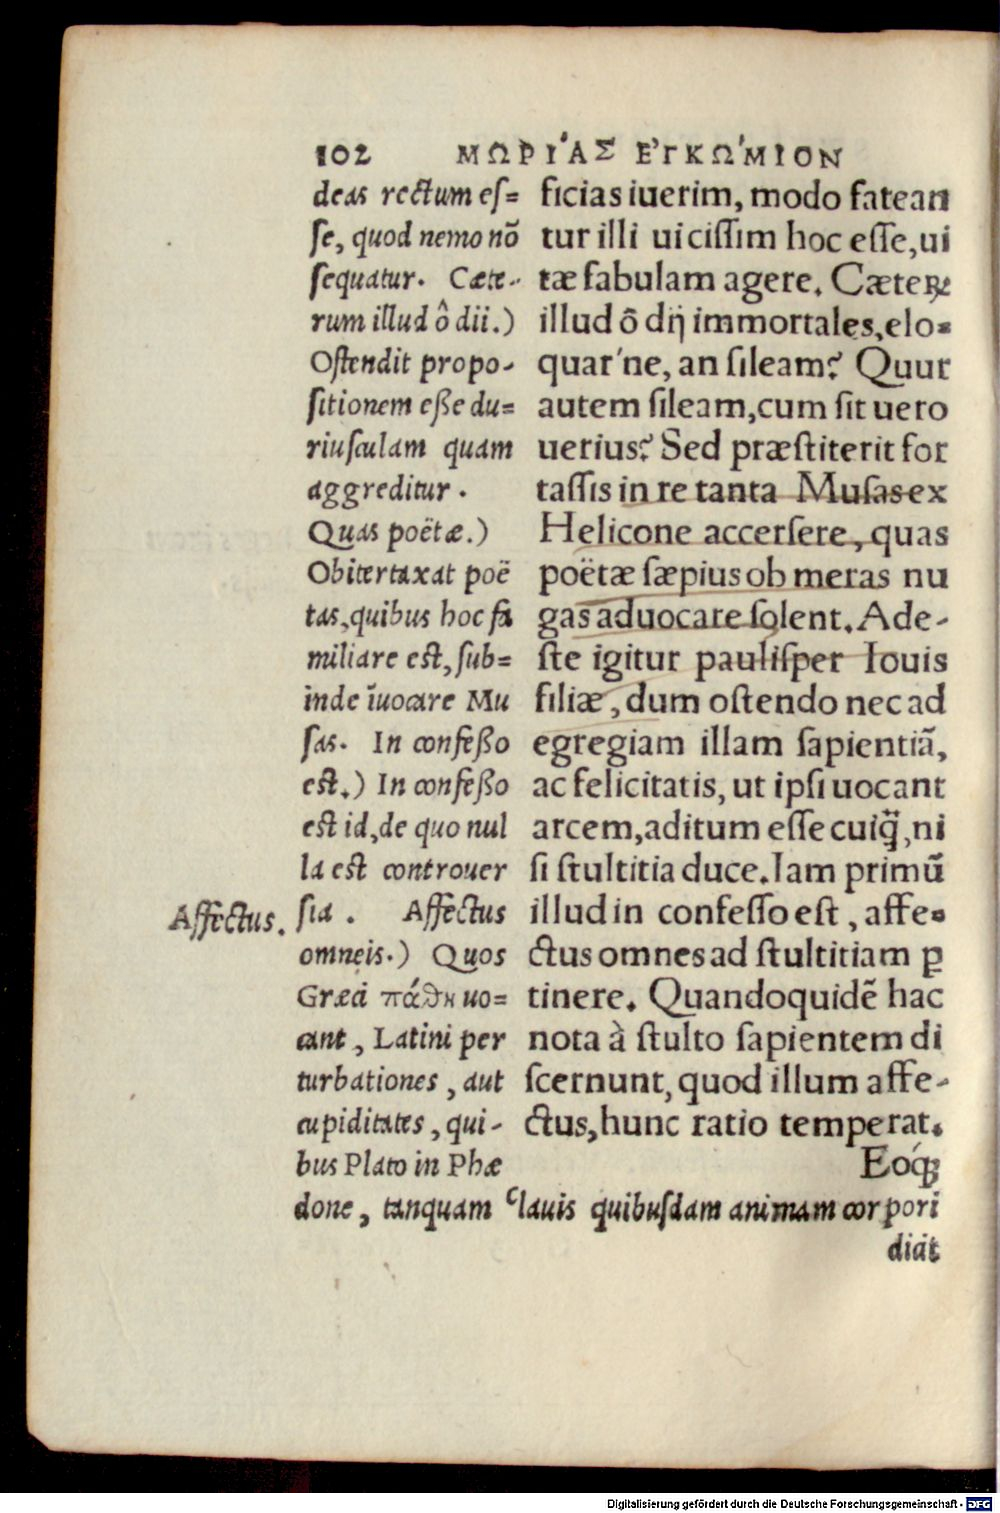 102 ΜΩΡΙ´ΑΣ ΕʼΓΚΩ´ΜΙΟΝ
deas rectum eſ=
ſe, quod nemo nō
ſequatur. Cæte-
rum illud ô dii.)
Oſtendit propo-
ſitionem eße du=
riuſculam quam
aggreditur.
Quas poëtæ.)
Obiter taxat poë
tas, quibus hoc fa
miliare eſt, ſub=
inde īuocare Mu
ſas. In confeßo
eſt.) In confeßo
eſt id, de quo nul
la eſt controuer
ſia. Affectus
omneis.) Quos
Græci πάθη uo=
cant, Latini per
turbationes, aut
cupiditates, qui-
bus Plato in Phæ
done, tanquam clauis quibuſdam animam corpori
Affectus.
ficias iuerim, modo fatean
tur illi uiciſſim hoc eſſe, ui
tæ fabulam agere. Cæteꝝ
illud ô dij immortales, elo-
quar'ne, an ſileam? Quur
autem ſileam, cum ſit uero
uerius? Sed præſtiterit for
taſſis in re tanta Muſas ex
Helicone accerſere, quas
poëtæ ſæpius ob meras nu
gas aduocare ſolent. Ade-
ſte igitur pauliſper Iouis
filiæ, dum oſtendo nec ad
egregiam illam ſapientiā,
ac felicitatis, ut ipſi uocant
arcem, aditum eſſe cuiq̃, ni
ſi ſtultitia duce. Iam primū
illud in confeſſo eſt, affe-
ctus omnes ad ſtultitiam ꝑ
tinere. Quandoquidē hac
nota à ſtulto ſapientem di
ſcernunt, quod illum affe-
ctus, hunc ratio temperat.
Eóꝗ
diāt
Digitalisierung gefördert durch die Deutsche Forschungsgemeinschaft - DFG